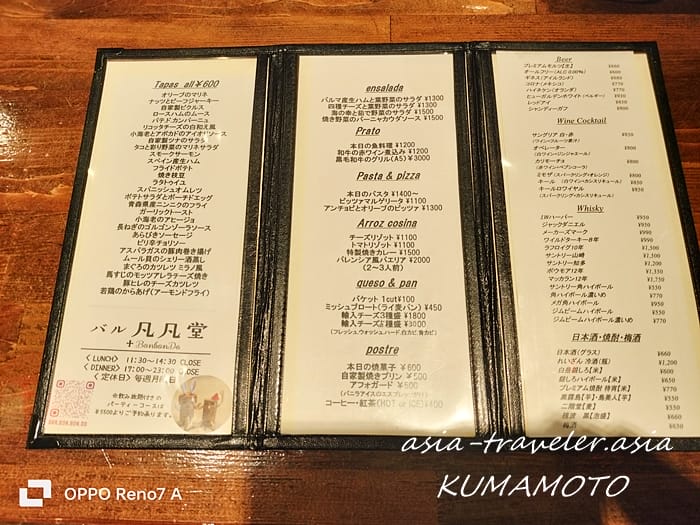 Tapas all ¥600
オリーブのマリネ
ナッツとビーフジャーキー
自家製ピクルス
ロースハムのムース
パテドカンパーニュ
リコッタチーズの白和え風
小海老とアボカドのアイオリソース
自家製ツナのサラダ
タコと彩り野菜のマリネサラダ
スモークサーモン
スペイン産生ハム
フライドポテト
焼き枝豆
ラタトゥイユ
スパニッシュオムレツ
ポテトサラダとポーチドエッグ
青森県産ニンニクのフライ
ガーリックトースト
小海老のアヒージョ
長ねぎのゴルゴンゾーラソース
あらびきソーセージ
ピリ辛チョリソー
アスパラガスの豚肉巻き揚げ
ムール貝のシェリー酒蒸し
まぐろのカツレツ ミラノ風
馬すじのモッツアレラチーズ焼き
豚ヒレのチーズカツレツ
若鶏のからあげ(アーモンドフライ)
バル 凡凡堂
+BonbonDo
〈LUNCH〉 11:30~14:30 CLOSE
〈DINNER〉 17:00~23:00 CLOSE
〈定休日〉毎週月曜日
※飲み放題付きの
パーティーコースは
¥5500よりご予約承ります。
ensalada
パルマ産生ハムと葉野菜のサラダ ¥1300
四種チーズと葉野菜のサラダ ¥1300
海の幸と茹で野菜のサラダ ¥1500
焼き野菜のバーニャカウダソース ¥1500
Prato
本日の魚料理 ¥1200
和牛の赤ワイン煮込み ¥1200
黒毛和牛のグリル(A5) ¥3000
Pasta & pizza
本日のパスタ ¥1400~
ピッツァマルゲリータ ¥1100
アンチョビとオリーブのピッツァ ¥1300
Arroz cosina
チーズリゾット ¥1100
トマトリゾット ¥1100
特製焼きカレー ¥1500
バレンシア風パエリア ¥2000
(2~3人前)
queso & pan
バケット 1cut¥100
ミッシュブロート(ライ麦パン) ¥450
輸入チーズ3種盛 ¥1800
輸入チーズ5種盛 ¥3000
(フレッシュ,ウォッシュ,ハード,白カビ,青カビ)
postre
本日の焼菓子 ¥600
自家製焼きプリン ¥500
アフォガード ¥500
(バニラアイスのエスプレッソがけ)
コーヒー・紅茶(HOT or ICE) ¥400
Beer
プレミアムモルツ【生】 ¥660
オールフリー(ALC 0.00%) ¥600
ギネス(アイルランド) ¥880
コロナ(メキシコ) ¥770
ハイネケン(オランダ) ¥770
ヒューガルデンホワイト(ベルギー) ¥930
レッドアイ ¥850
シャンディーガフ ¥880
Wine Cocktail
サングリア 白・赤 ¥850
(ワイン・フルーツ果汁)
オペレーター ¥800
(白ワイン・ジンジャエール)
カリモーチョ ¥800
(赤ワイン・ペプシコーラ)
ミモザ(スパークリング・オレンジ) ¥850
キール (白ワイン・カシスリキュール) ¥850
キールロワイヤル ¥850
(スパークリング・カシスリキュール)
Whisky
I.Wハーパー ¥950
ジャックダニエル ¥950
メーカーズマーク ¥990
ワイルドターキー8年 ¥990
ラフロイグ10年 ¥1,500
サントリー山崎 ¥1,500
サントリー知多 ¥1,200
ボウモア12年 ¥1,350
マッカラン12年 ¥1,750
サントリー角ハイボール ¥550
角ハイボール濃いめ ¥770
メガ角ハイボール ¥950
ジムビームハイボール ¥650
ジムビームハイボール濃いめ ¥770
日本酒・焼酎・梅酒
日本酒(グラス) ¥660
れいざん 冷酒(瓶) ¥1,200
白岳しろ【米】 ¥560
銀しろハイボール【米】 ¥650
プレミアム焼酎 待宵【米】 ¥770
黒霧島【芋】・島美人【芋】 ¥550
二階堂【麦】 ¥550
残波 黒【泡盛】 ¥660
梅酒 ¥650
asia-traveler.asia
KUMAMOTO
OPPO Reno7 A